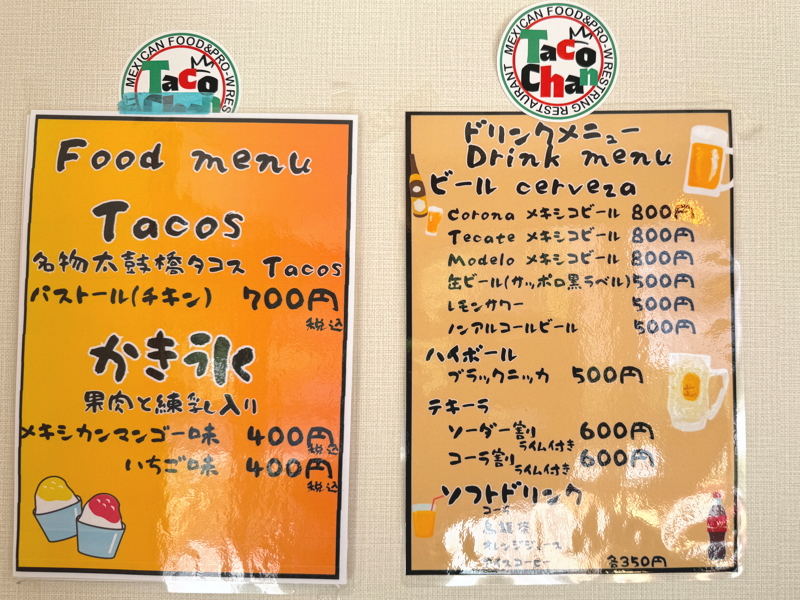 MEXICAN FOOD&PRO-WREST
Taco
Food menu
Tacos
名物太鼓橋タコス Tacos
パストール(チキン) 700円
税込
かき氷
果肉と練乳入り
メキシカンマンゴー味 400円
税込
いちご味 400円
税込
MEXICAN FOOD&PRO-WRESTRING RESTAURANT
Taco
Chan
ドリンクメニュー
Drink menu
ビール cerveza
Corona メキシコビール 800円
Tecate メキシコビール 800円
Modelo メキシコビール 800円
缶ビール(サッポロ黒ラベル)500円
レモンサワー 500円
ノンアルコールビール 500円
ハイボール
ブラックニッカ 500円
テキーラ
ソーダー割り 600円
ライム付き
コーラ割り 600円
ライム付き
ソフトドリンク
コーラ
烏龍茶
オレンジジュース
アイスコーヒー 各350円